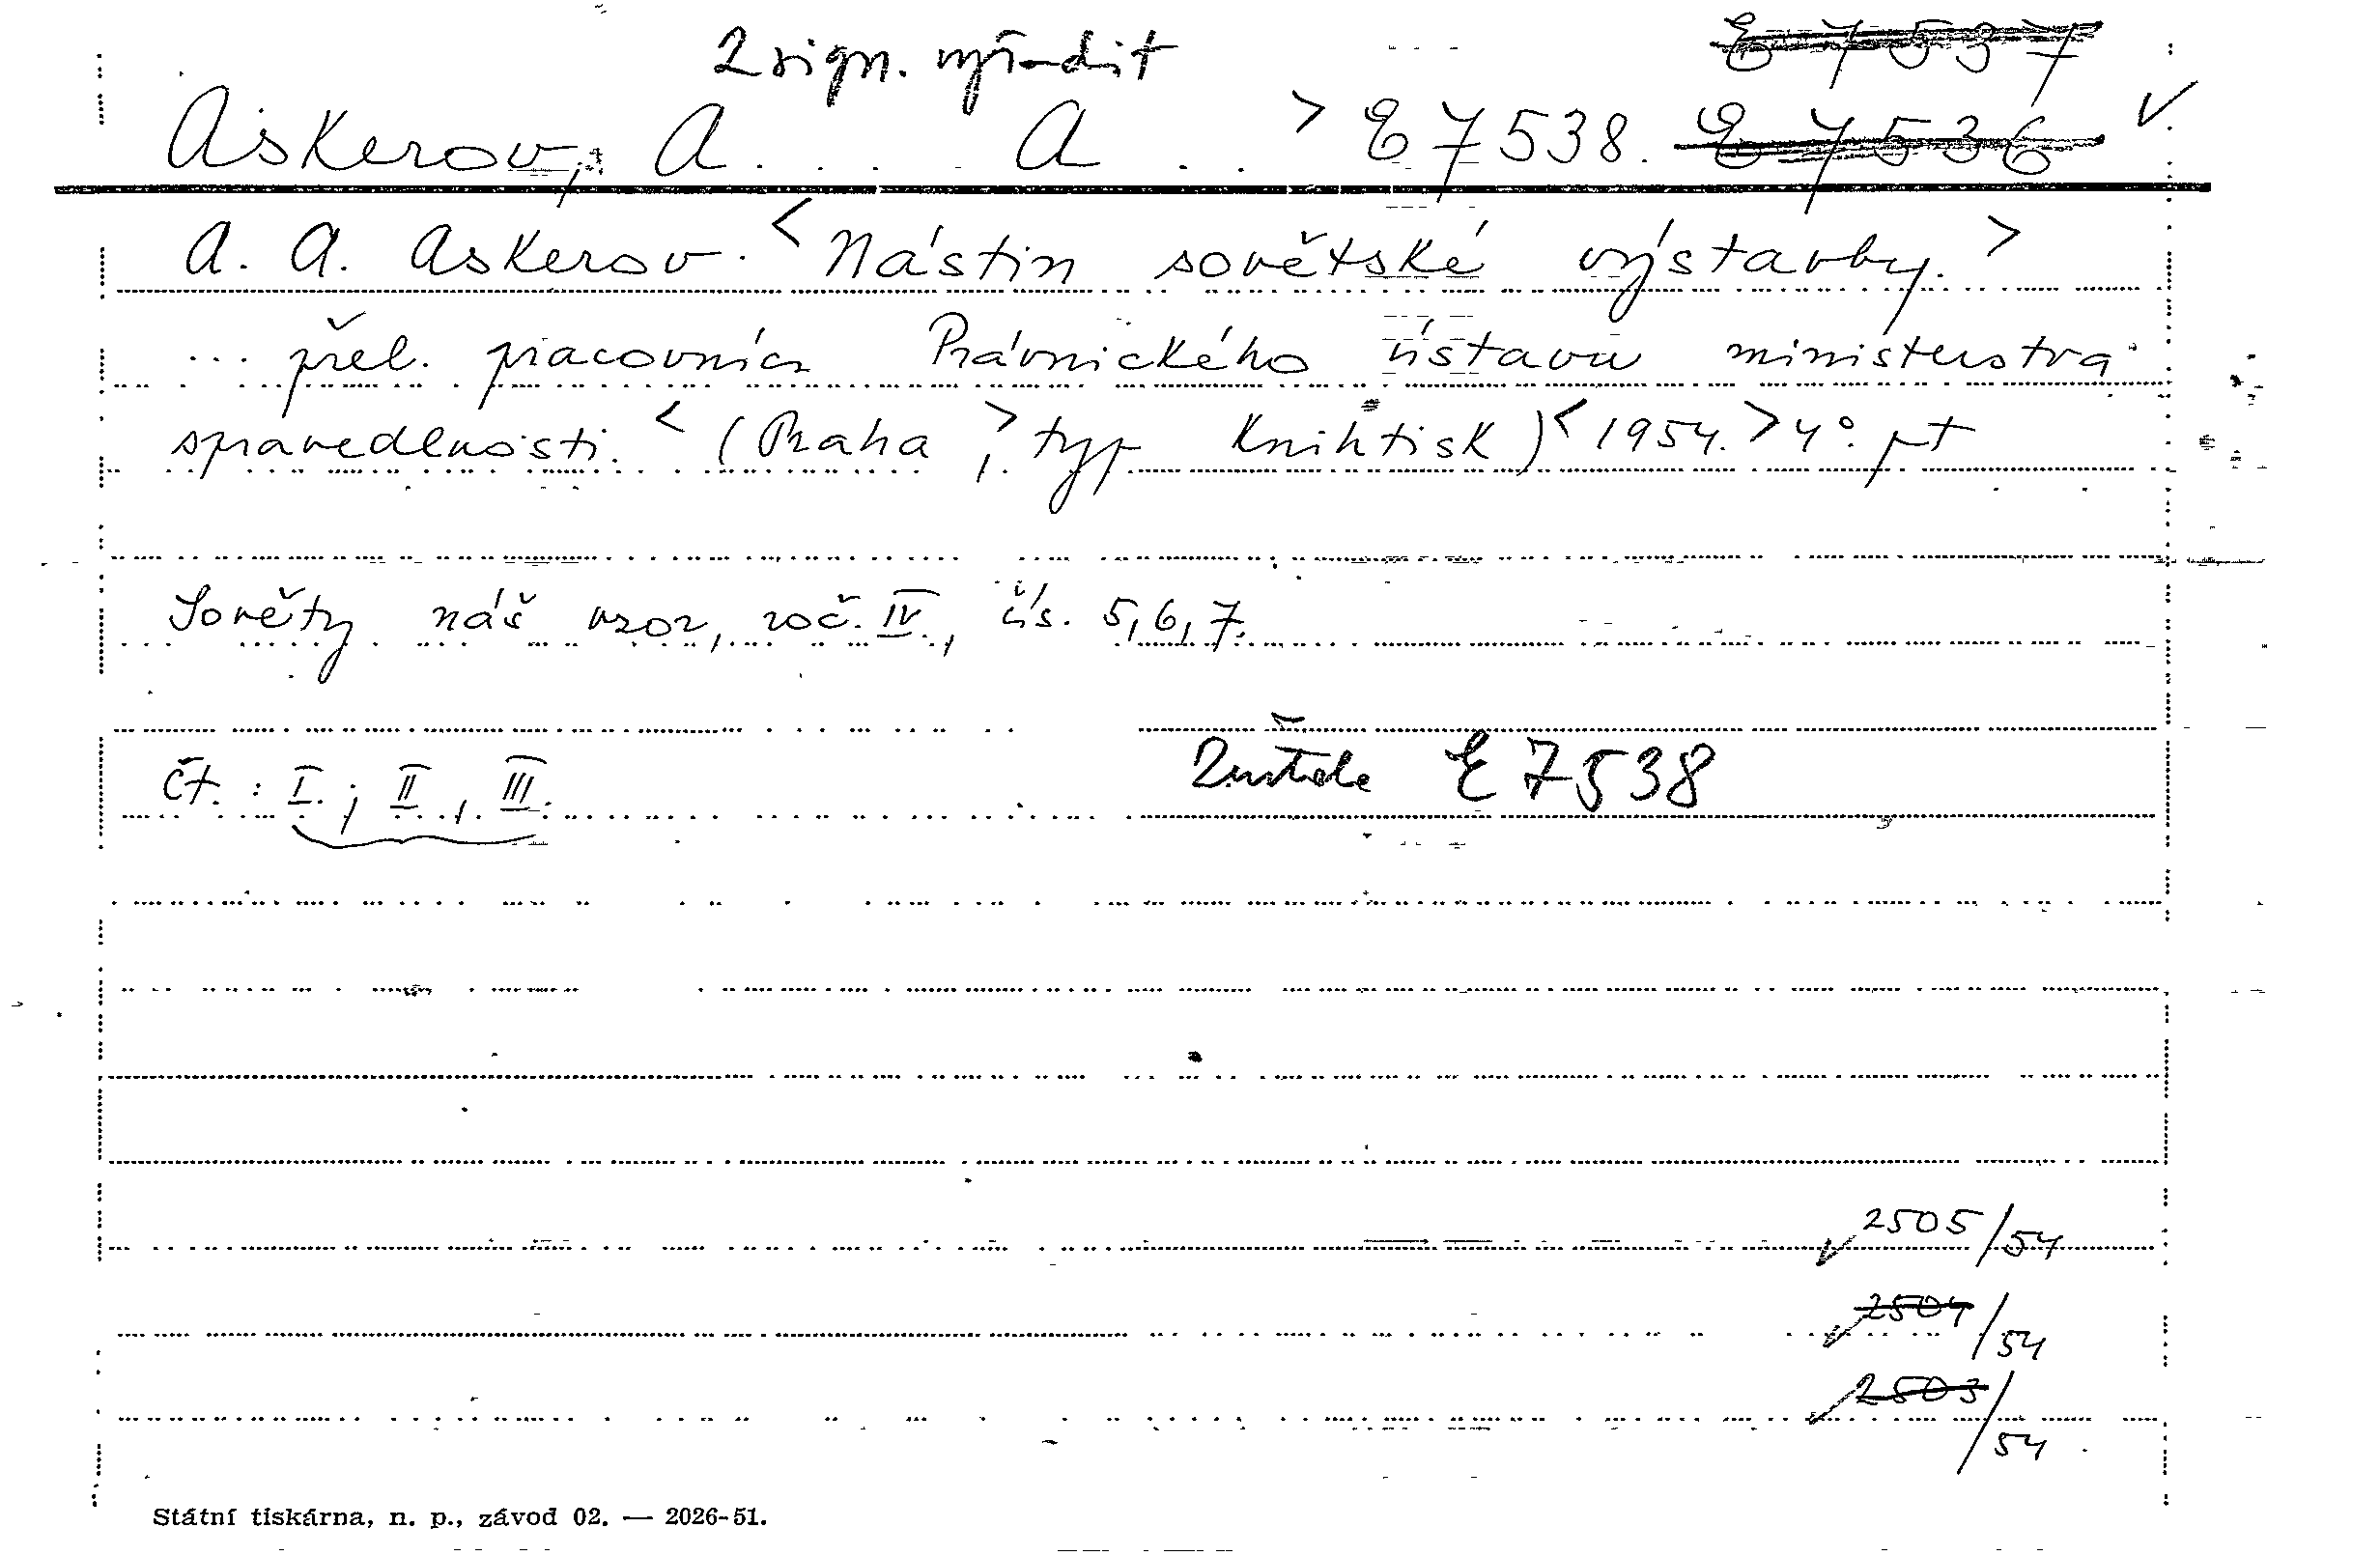 2 sign. vyřadit E 7537
Askerov, A. . . A . . > E 7538. E 7536
A. A. Askerov. < Nástin sovětské výstavby. >
... přel. pracovníci Právnického ústavu ministerstva
spravedlnosti. < (Praha, > typ Knihtisk) < 1954. > 4°. pt
Sověty náš vzor, roč. IV., čís. 5, 6, 7.
čt. : I. ; II , III. Zůstale E 7538
2505/54
2504/54
2503/54
Státní tiskárna, n. p., závod 02. — 2026-51.